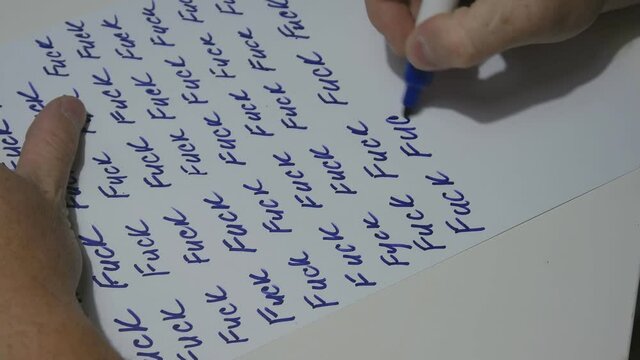 Fuck Fuck
Fuck Fuck
Fuck Fuck Fuck Fuck
Fuck Fuck Fuck Fuck
Fuck Fuck Fuck Fuck Fuck
Fuck Fuck Fuck Fuck Fuck
Fuck Fuck Fuck Fuck
Fuck Fuck Fuck Fuck
Fuck Fuck Fuck
Fyck Fuck
Fuck Fuc
Fuck